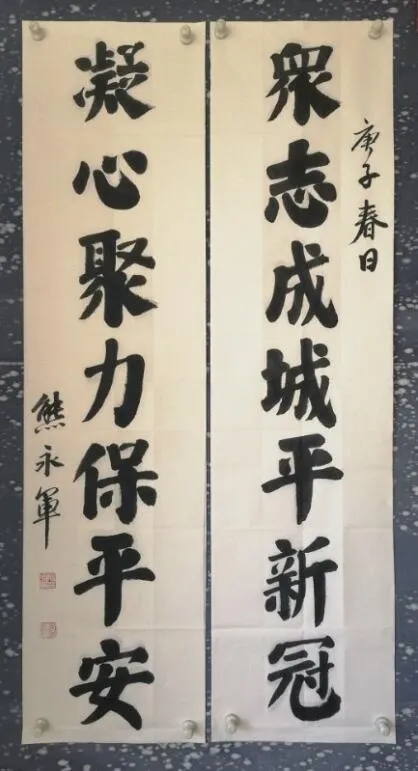 庚子春日
眾志成城平新冠
凝心聚力保平安
熊永軍